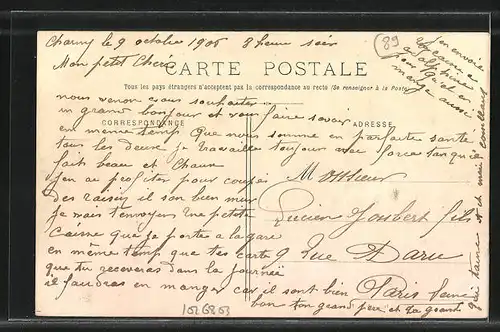 Charny le 9 octobre 1906 8 heure soir
Mon petit Cheris
CARTE POSTALE
Tous les pays étrangers n'acceptent pas la correspondance au recto (Se renseigner à la Poste)
CORRESPONDANCE
ADRESSE
nous venon vous souhaiter
un grand bonjour et vous faire savoir
en meme temp Que nous somme en parfaite sante
tous les deux je travaille toujour avec force tan qu'il
fait beau et Chaux
jen ai profiter pour couper
Des raisin il son bien mur
je vais t'envoyer une petite
Caisse que je porte a la gare
en même temp que tes carte
que tu receveras dans la journée
il faudras en manger car il sont bien
bon ton grand père et ta grand
Monsieur
Lucien Joubert fils
9 Rue Daru
Paris
jen envoie
a
pour qu'el en
mange aussi
qui t'aime et
89
1026803